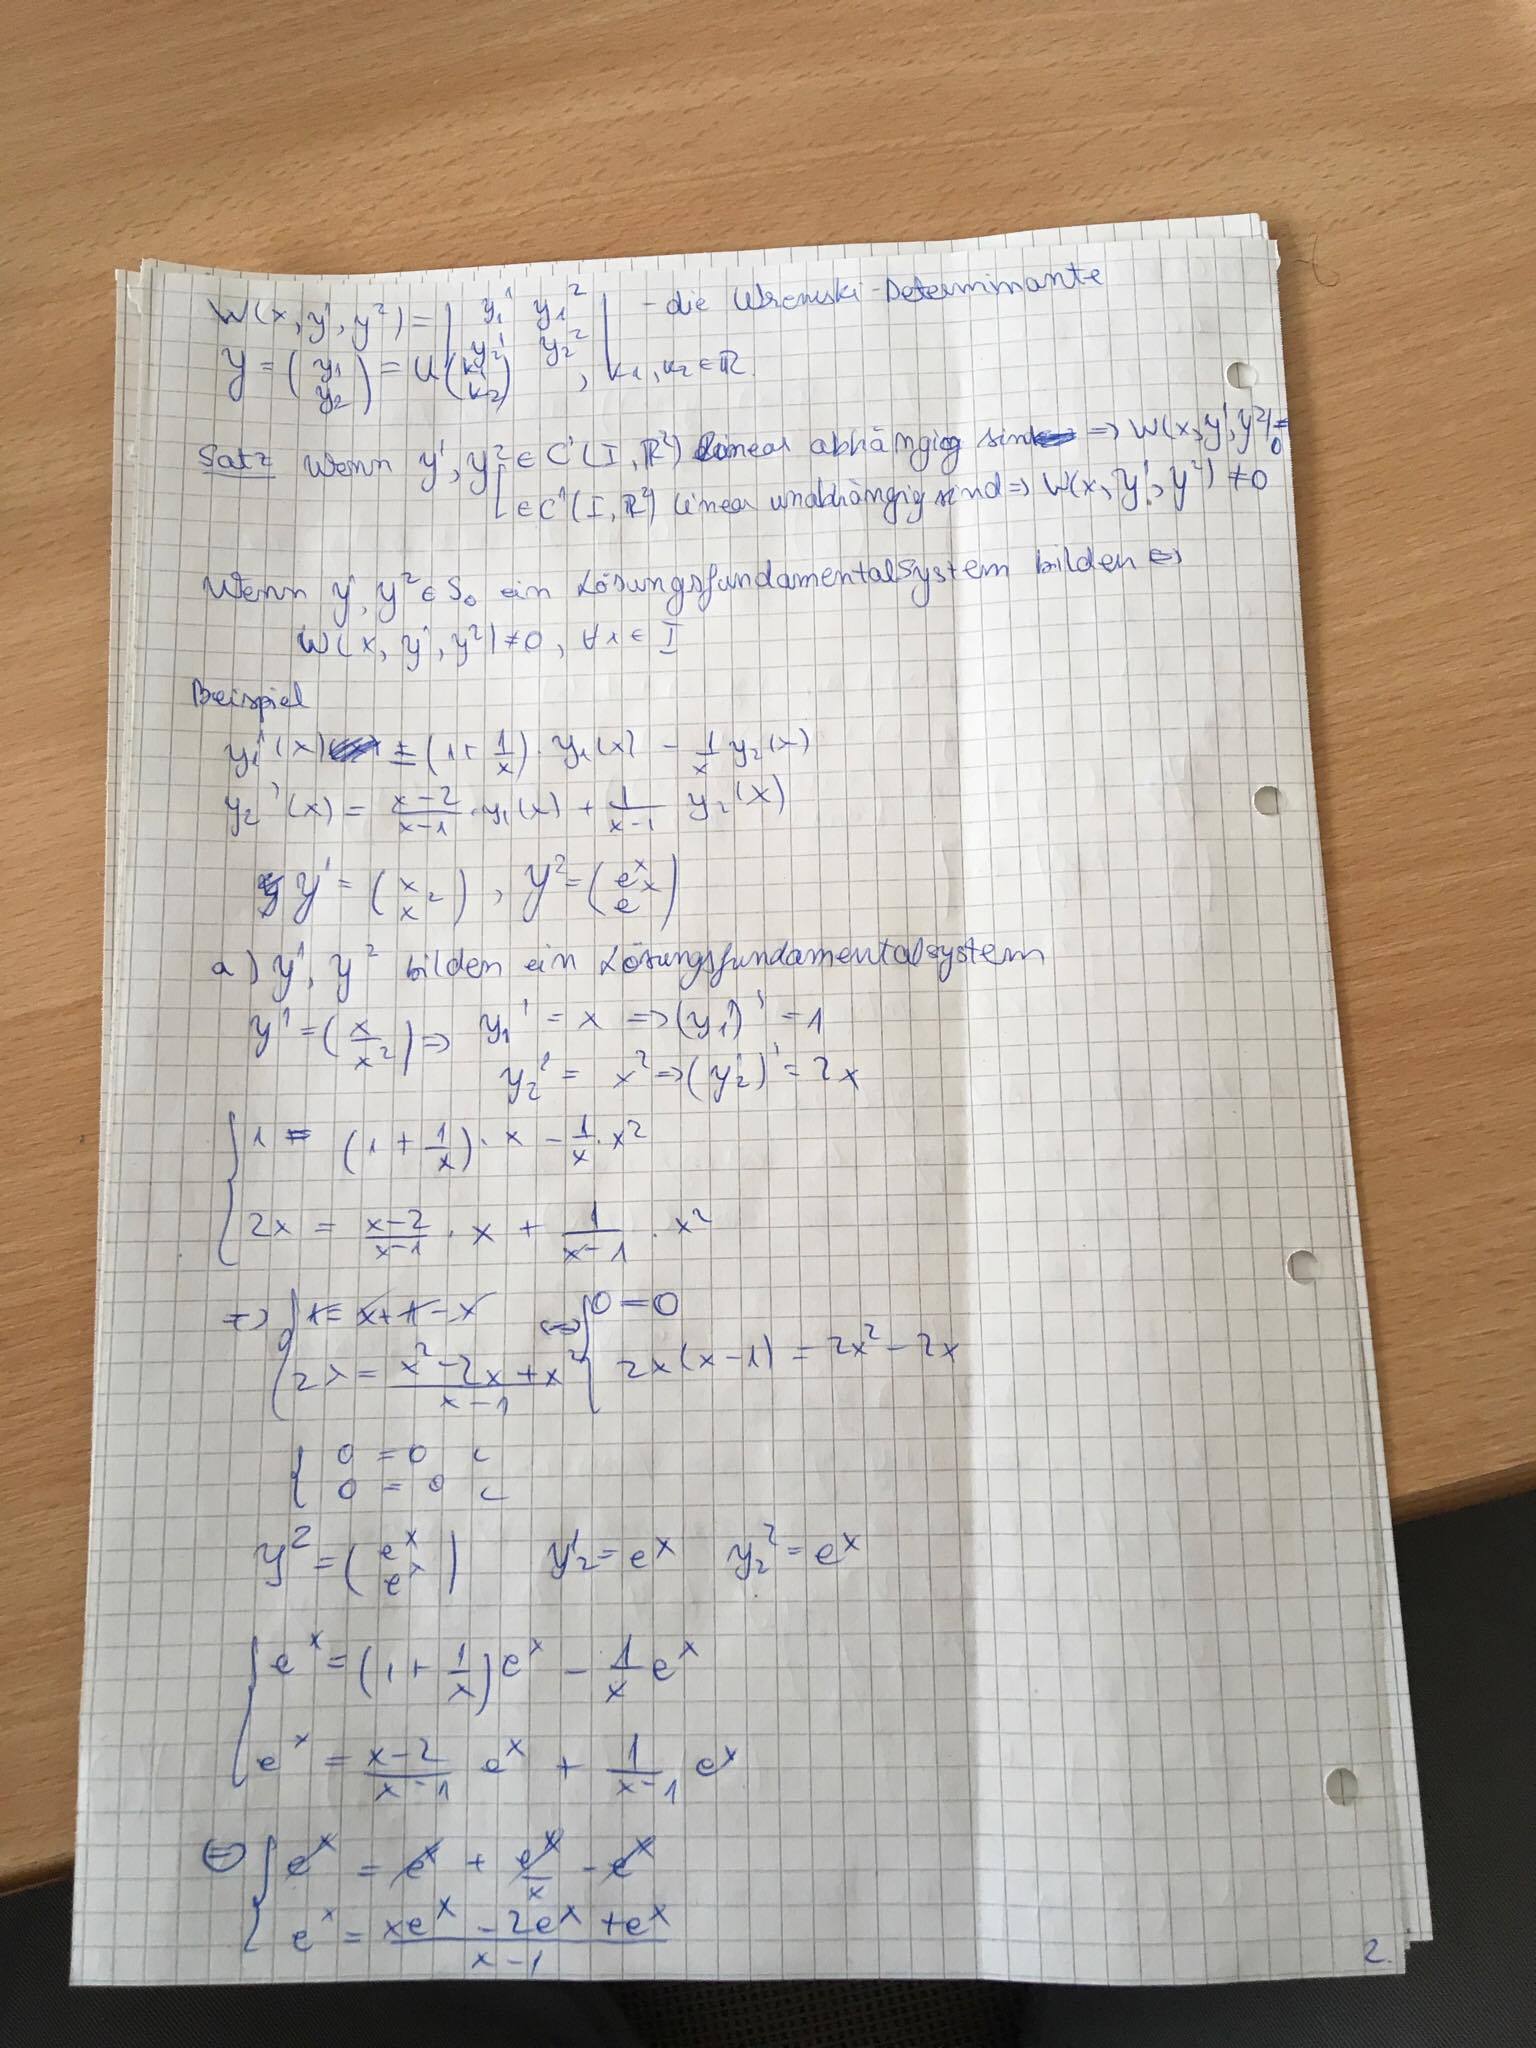 W(x, y¹, y²) = | y₁¹ y₁² | - die Wronski-Determinante
| y₂¹ y₂² |
y = (y₁ y₂) = U (k₁ k₂), k₁, k₂ ∈ ℝ.
Satz Wenn y¹, y² ∈ C¹(I, ℝ²) linear abhängig sind ⇒ W(x, y¹, y²) = 0
∈ C¹(I, ℝ²) linear unabhängig sind ⇒ W(x, y¹, y²) ≠ 0
Wenn y¹, y² ∈ S₀ ein Lösungsfundamentalsystem bilden ⇔
W(x, y¹, y²) ≠ 0, ∀x ∈ I
Beispiel
y₁'(x) = (1 + 1/x) · y₁(x) - 1/x y₂(x)
y₂'(x) = (x-2)/(x-1) · y₁(x) + 1/(x-1) y₂(x)
y¹ = (x x²), y² = (eˣ eˣ)
a) y¹, y² bilden ein Lösungsfundamentalsystem
y¹ = (x x²) ⇒ y₁¹ = x ⇒ (y₁¹)' = 1
y₂¹ = x² ⇒ (y₂¹)' = 2x
{ 1 = (1 + 1/x) · x - 1/x · x²
2x = (x-2)/(x-1) · x + 1/(x-1) · x²
⇒ { 1 = x + 1 - x ⇔ { 0 = 0
2x = (x² - 2x + x²)/(x-1) 2x(x-1) = 2x² - 2x
{ 0 = 0
0 = 0
y² = (eˣ eˣ) y₂¹ = eˣ y₂² = eˣ
{ eˣ = (1 + 1/x) eˣ - 1/x eˣ
eˣ = (x-2)/(x-1) eˣ + 1/(x-1) eˣ
⇔ { eˣ = eˣ + eˣ/x - eˣ
eˣ = (xeˣ - 2eˣ + eˣ)/(x-1)
2.